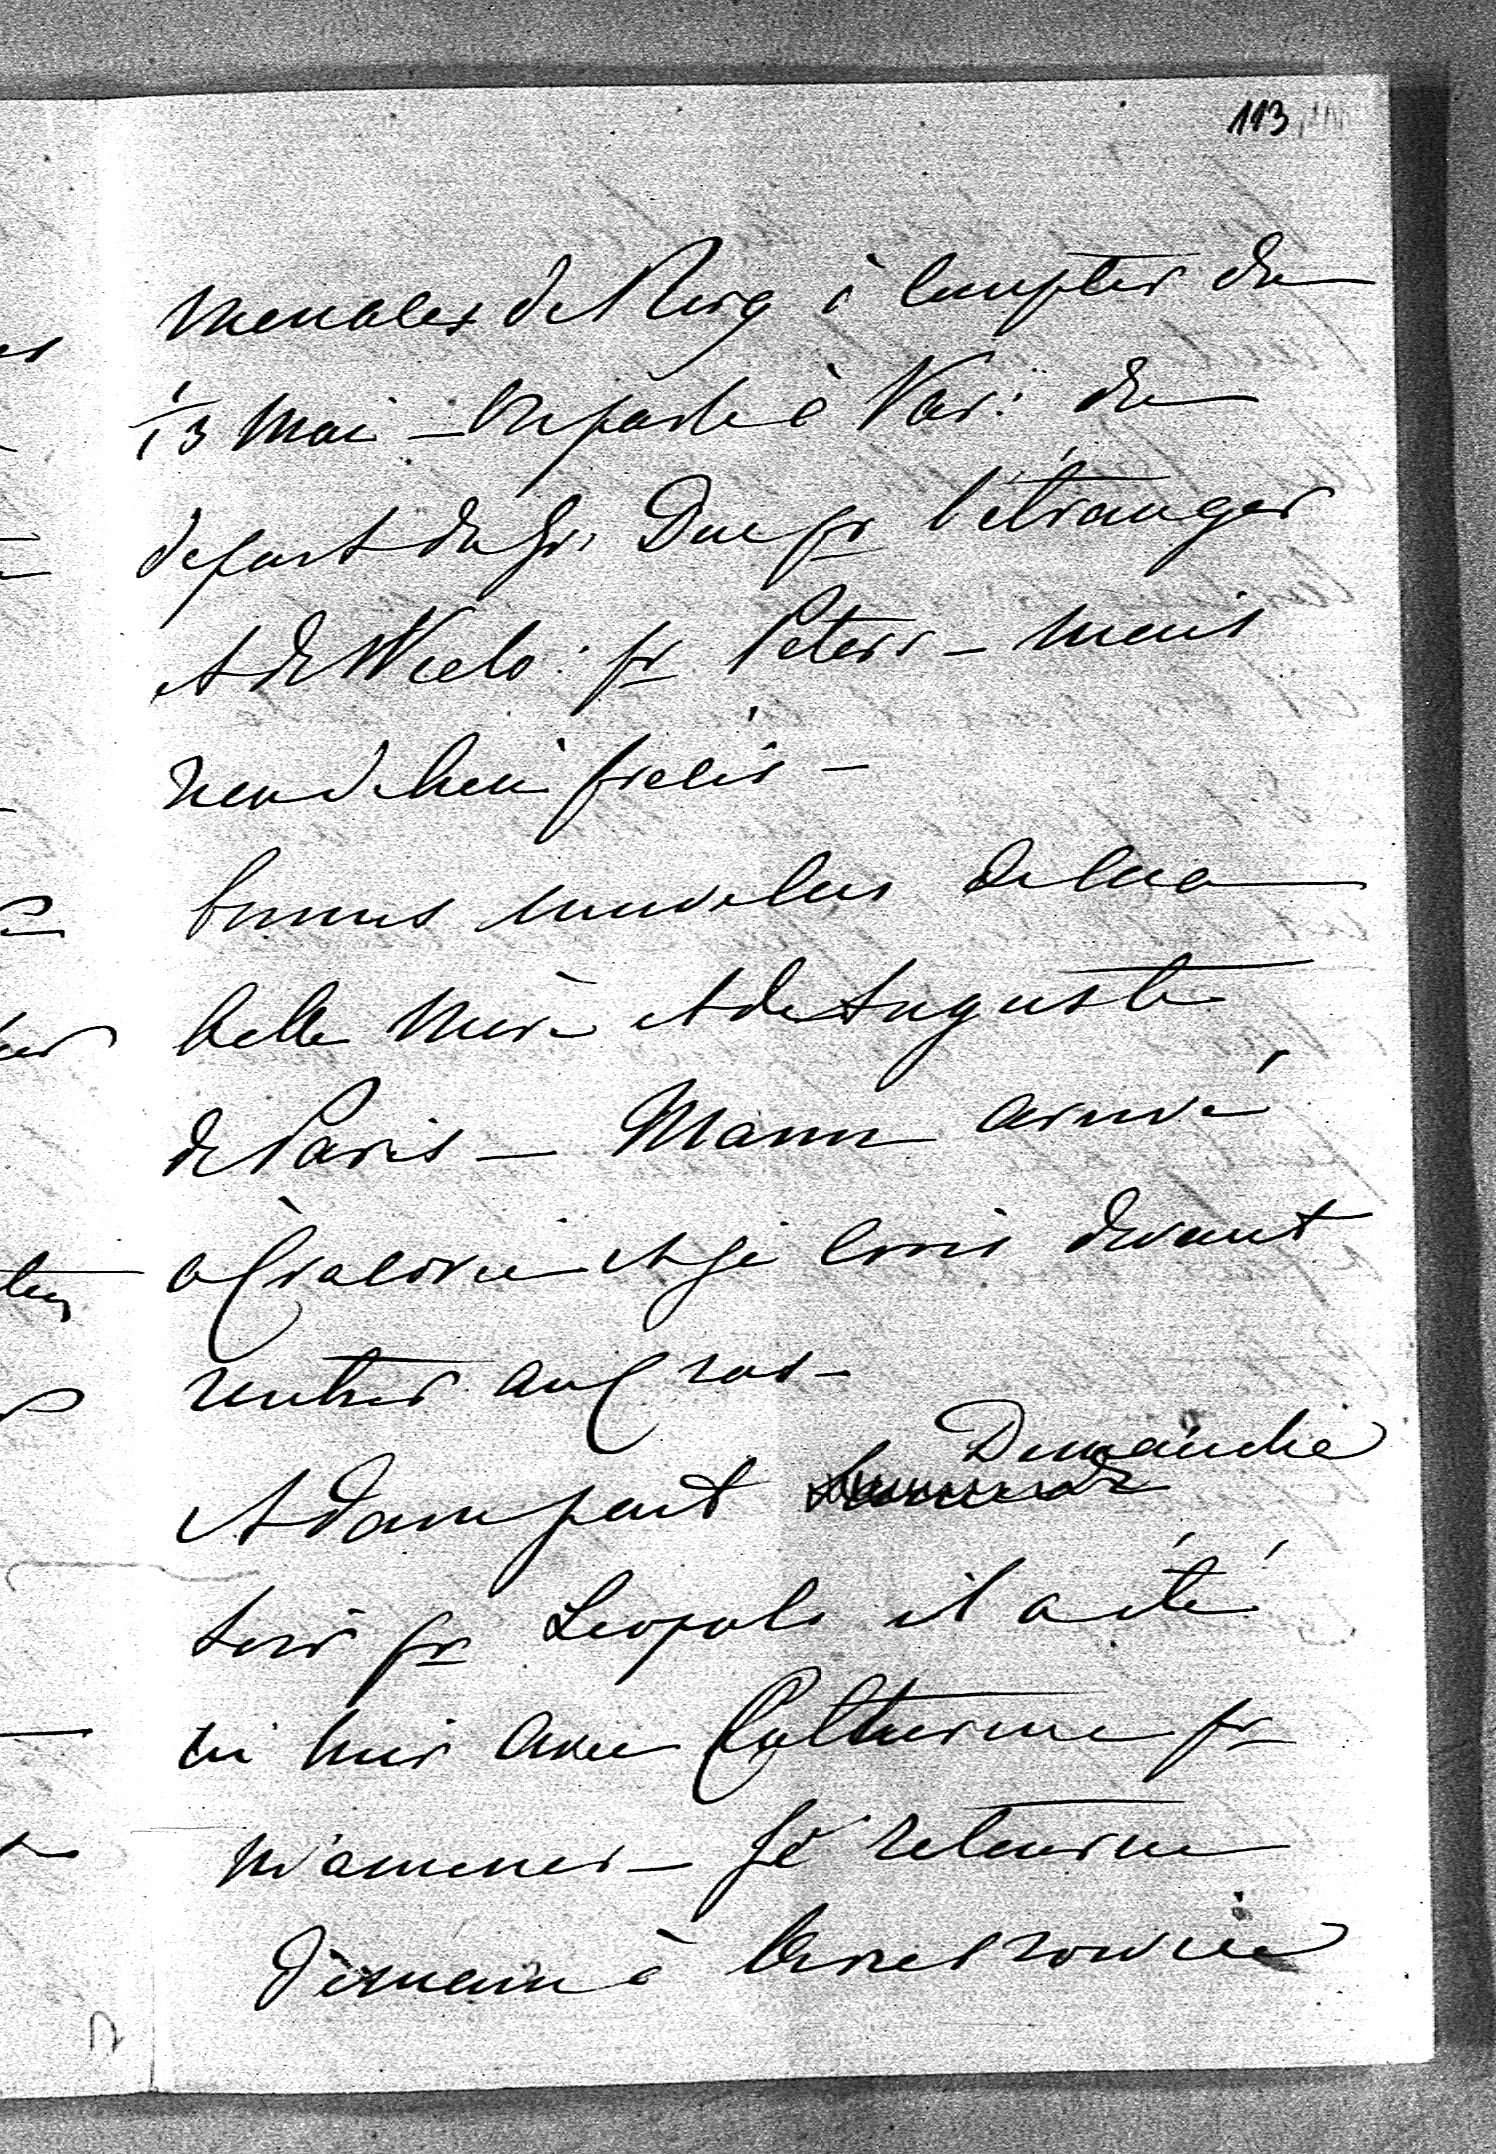 113
meubles de Rurg à compter du
1/13 Mai – On parle à Var: du
depart du Gr. Duc pr l'étranger
et de Wielo: pr Peters – mais
rien de bien précis –
bonnes nouvelles de la
belle Mère et de Auguste
de Paris – Maman arrivé
à Cracovie et je crois devant
rentrer au C
Adam part Dimanche
soir pr Leopols il a été
ici hier avec Catherine pr
m'amener – Je retourne
demain à